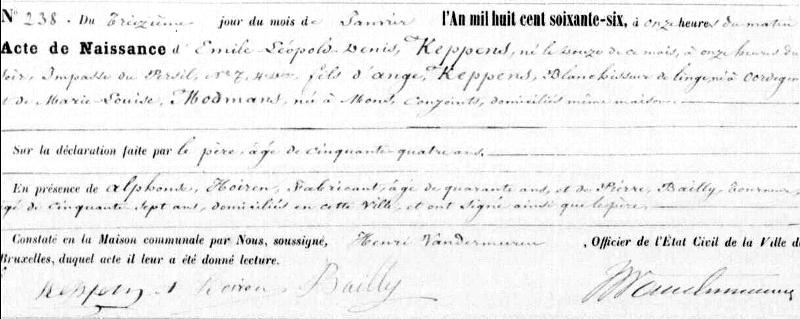 N° 238. Du Treizième jour du mois de Janvier l'An mil huit cent soixante-six, à onze heures du matin
Acte de Naissance d'Emile Léopold Denis, Keppens, né le Douze de ce mois, à onze heures du
soir, Impasse du Persil, N° 7, fils d'ange, Keppens, Blanchisseur de linge, né à
et de Marie Louise, Modmans, née à Mons, Conjoints, domiciliés même maison.
Sur la déclaration faite par le père, âgé de cinquante quatre ans.
En présence de alphonse, Hoiren, Fabricant, âgé de quarante ans, et de Pierre, Bailly, Tourneur,
âgé de Cinquante Sept ans, domiciliés en cette Ville, et ont Signé ainsi que le père.
Constaté en la Maison communale par Nous, soussigné, Henri Vandermeeren, Officier de l'État Civil de la Ville de
Bruxelles, duquel acte il leur a été donné lecture.
Keppens Bailly